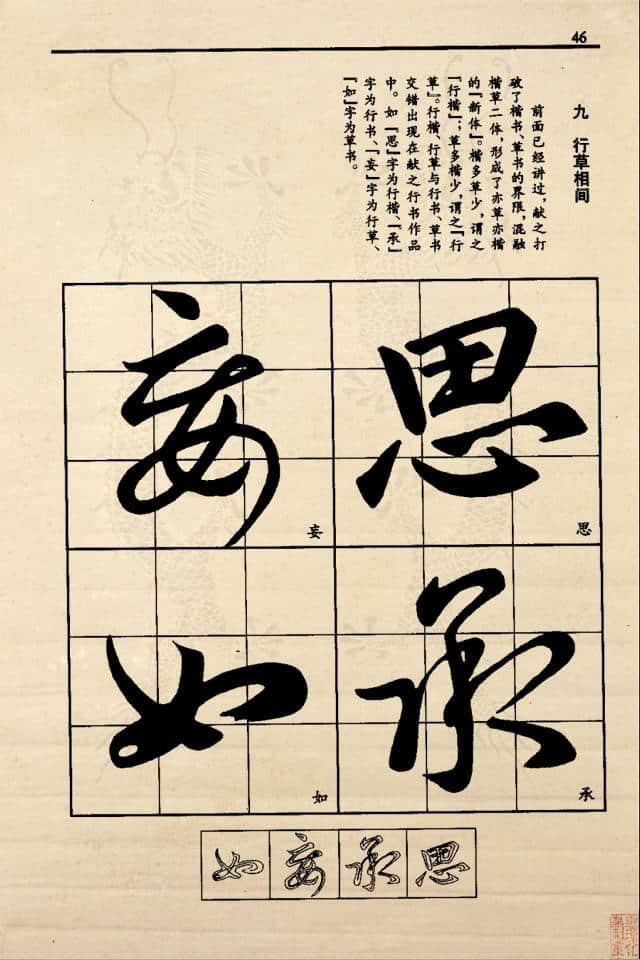 46
九　行草相间
前面已经讲过，献之打
破了楷书、草书的界限，混融
楷草二体，形成了亦草亦楷
的『新体』。楷多草少，谓之
『行楷』；草多楷少，谓之『行
草』。行楷、行草与行书、草书
交错出现在献之行书作品
中。如『思』字为行楷、『承』
字为行书、『妄』字为行草、
『如』字为草书。
思
思
承
承
妄
妄
如
如
思
承
妄
如